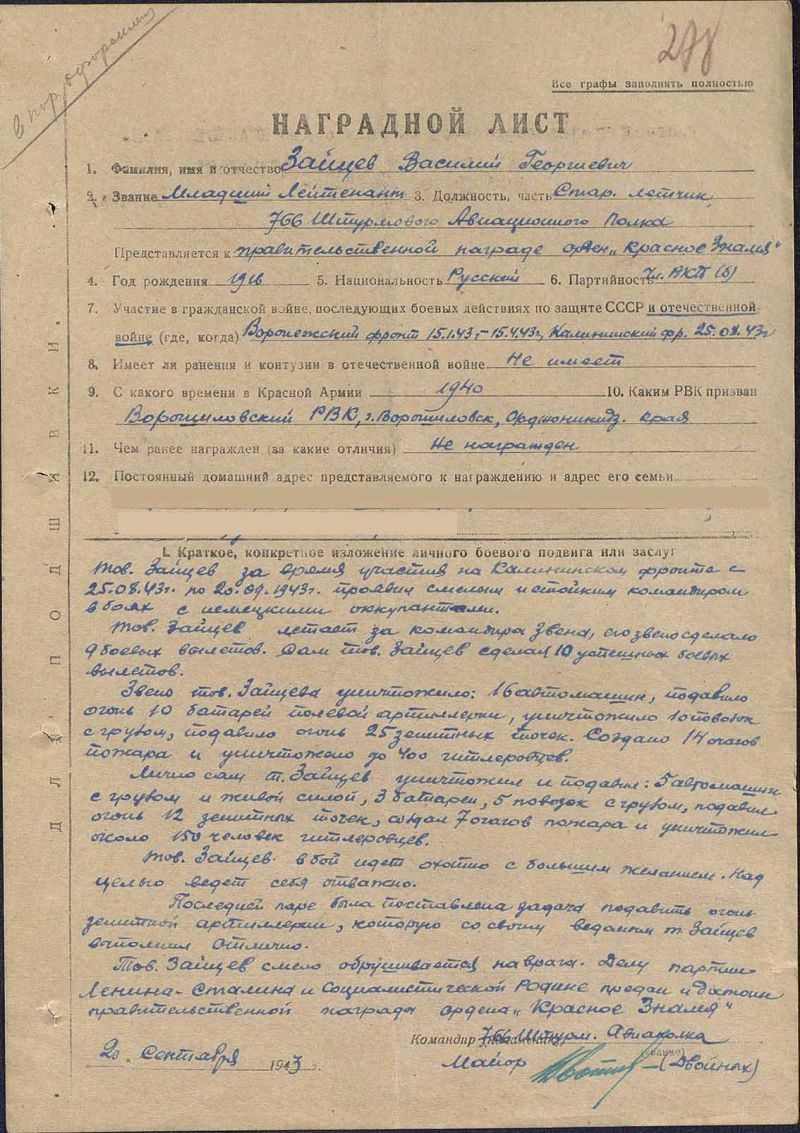 278
в пор. оформлен
Все графы заполнять полностью
НАГРАДНОЙ ЛИСТ
1. Фамилия, имя и отчество Зайцев Василий Георгиевич
2. Звание Младший Лейтенант 3. Должность, часть Стар. летчик
766 Штурмового Авиационного Полка
Представляется к правительственной награде орден „Красное Знамя"
4. Год рождения 1918 5. Национальность Русский 6. Партийность чл. ВКП(б)
7. Участие в гражданской войне, последующих боевых действиях по защите СССР и отечественной
войне (где, когда) Воронежский фронт 15.1.43г-15.4.43г, Калининский фр. 25.08.43г
8. Имеет ли ранения и контузии в отечественной войне Не имеет
9. С какого времени в Красной Армии 1940 10. Каким РВК призван
Ворошиловский РВК, г. Ворошиловск, Орджоникидз. края
11. Чем ранее награжден (за какие отличия) Не награжден
12. Постоянный домашний адрес представляемого к награждению и адрес его семьи
I. Краткое, конкретное изложение личного боевого подвига или заслуг
Тов. Зайцев за время участия на Калининском фронте с
25.08.43г. по 20.09.1943г. проявил смелым и стойким командиром
в боях с немецкими оккупантами.
Тов. Зайцев летает за командира звена, его звено сделало
9 боевых вылетов. Сам тов. Зайцев сделал 10 успешных боевых
вылетов.
Звено тов. Зайцева уничтожило: 16 автомашин, подавило
огонь 10 батарей полевой артиллерии, уничтожило 10 повозок
с грузом, подавило огонь 25 зенитных точек. Создано 14 очагов
пожара и уничтожено до 400 гитлеровцев.
Лично сам т. Зайцев уничтожил и подавил: 5 автомашин
с грузом и живой силой, 3 батареи, 5 повозок с грузом, подавил
огонь 12 зенитных точек, создал 7 очагов пожара и уничтожил
около 150 человек гитлеровцев.
Тов. Зайцев в бой идет охотно с большим желанием. Над
целью ведет себя отважно.
Последней паре была поставлена задача подавить огонь
зенитной артиллерии, которую со своим ведомым т. Зайцев
выполнил отлично.
Тов. Зайцев смело обрушивается на врага. Делу партии
Ленина-Сталина и Социалистической Родине предан и достоин
правительственной награды ордена „Красное Знамя"
Командир 766 Штурм. Авиаполка
20. Сентября 1943 г.
Майор (Двойных)
ДЛЯ ПОДШИВКИ.